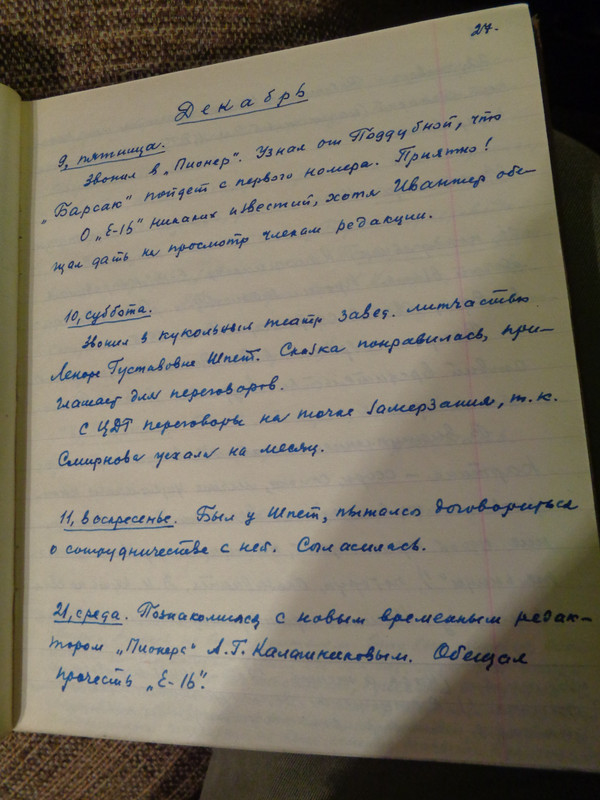 27.
Декабрь
9, пятница.
Звонил в „Пионер". Узнал от Поддубной, что
„Барсак" пойдет с первого номера. Приятно!
О „Е-16" никаких известий, хотя Ивантер обе-
щал дать на просмотр членам редакции.
10, суббота.
Звонил в кукольный театр завед. литчастью
Леноре Густавовне Шпет. Сказка понравилась, при-
глашает для переговоров.
С ЦДТ переговоры на точке замерзания, т.к.
Смирнова уехала на месяц.
11, воскресенье. Был у Шпет, пытался договориться
о сотрудничестве с ней. Согласилась.
21, среда. Познакомился с новым временным редак-
тором „Пионера" А.Г. Калашниковым. Обещал
прочесть „Е-16".